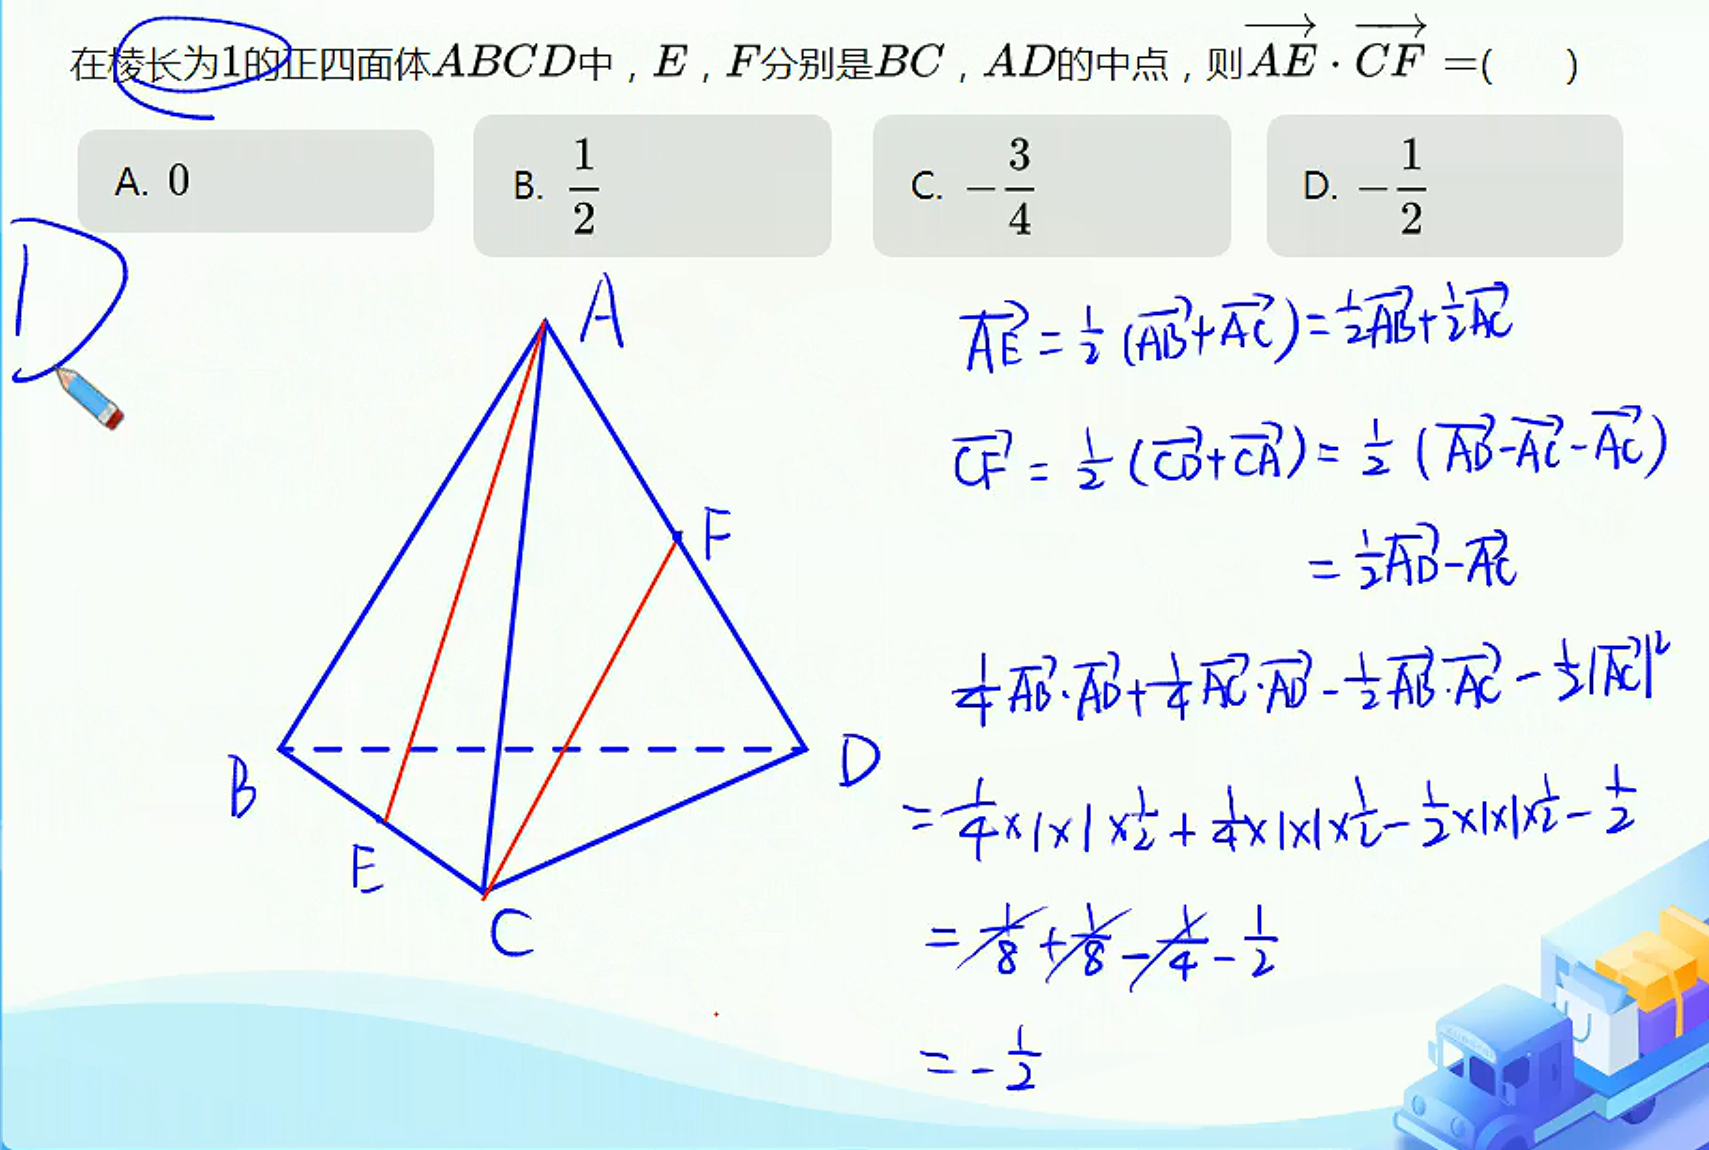 在棱长为1的正四面体ABCD中，E，F分别是BC，AD的中点，则$\overrightarrow{AE}\cdot\overrightarrow{CF}$=(　　)
A. 0
B. $\frac{1}{2}$
C. $-\frac{3}{4}$
D. $-\frac{1}{2}$
D
A
F
B
D
E
C
$\overrightarrow{AE}=\frac{1}{2}(\overrightarrow{AB}+\overrightarrow{AC})=\frac{1}{2}\overrightarrow{AB}+\frac{1}{2}\overrightarrow{AC}$
$\overrightarrow{CF}=\frac{1}{2}(\overrightarrow{CD}+\overrightarrow{CA})=\frac{1}{2}(\overrightarrow{AD}-\overrightarrow{AC}-\overrightarrow{AC})$
$=\frac{1}{2}\overrightarrow{AD}-\overrightarrow{AC}$
$\frac{1}{4}\overrightarrow{AB}\cdot\overrightarrow{AD}+\frac{1}{4}\overrightarrow{AC}\cdot\overrightarrow{AD}-\frac{1}{2}\overrightarrow{AB}\cdot\overrightarrow{AC}-\frac{1}{2}|\overrightarrow{AC}|^2$
$=\frac{1}{4}×1×1×\frac{1}{2}+\frac{1}{4}×1×1×\frac{1}{2}-\frac{1}{2}×1×1×\frac{1}{2}-\frac{1}{2}$
$=\frac{1}{8}+\frac{1}{8}-\frac{1}{4}-\frac{1}{2}$
$=-\frac{1}{2}$